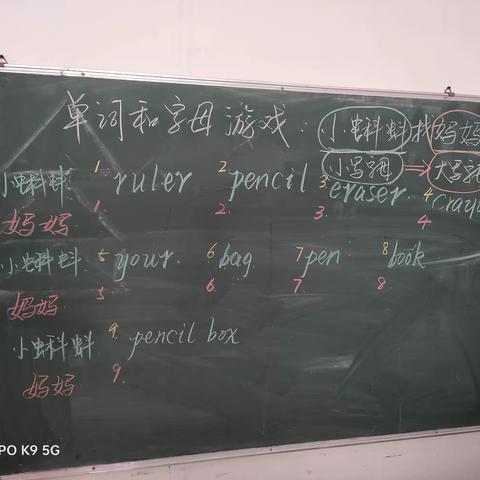 单词和字母游戏:小蝌蚪找妈妈
小写字母→大写字母
小蝌蚪 1 ruler 2 pencil 3 eraser. 4
妈妈 1. 2. 3. 4.
小蝌蚪 5 your. 6 bag. 7 pen 8 book.
妈妈 5 6 7 8.
小蝌蚪 9. pencil box
妈妈 9.
PO K9 5G